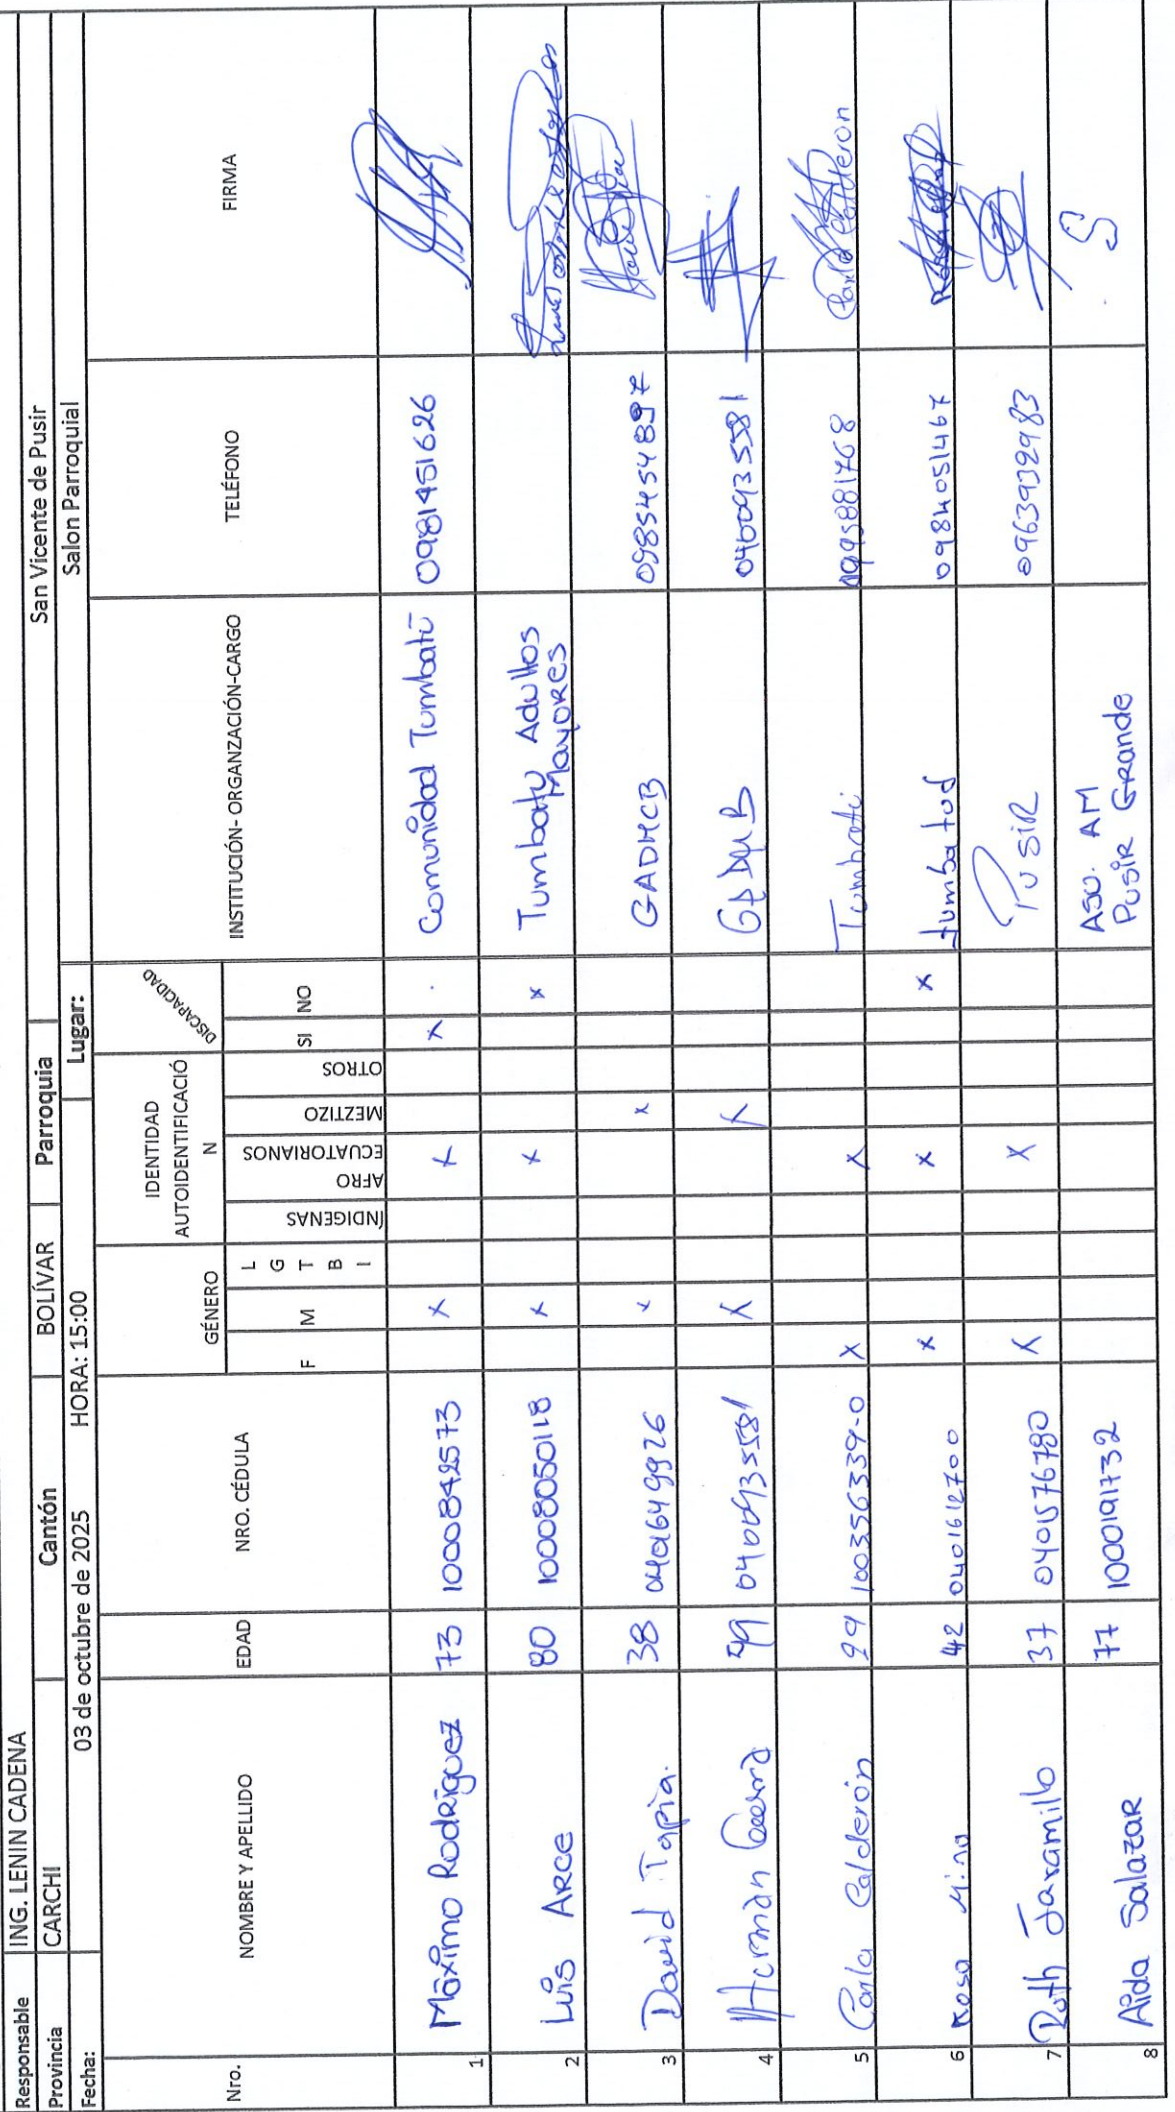 Responsable ING. LENIN CADENA
Provincia CARCHI Cantón BOLÍVAR Parroquia San Vicente de Pusir
Fecha: 03 de octubre de 2025 HORA: 15:00 Lugar: Salon Parroquial
Nro. NOMBRE Y APELLIDO EDAD NRO. CÉDULA GÉNERO IDENTIDAD AUTOIDENTIFICACIÓ N DISCAPACIDAD INSTITUCIÓN- ORGANZACIÓN-CARGO TELÉFONO FIRMA
F M L G T B I ÍNDIGENAS AFRO ECUATORIANOS MEZTIZO OTROS SI NO
1 Máximo Rodríguez 73 1000842573 x x x Comunidad Tumbatú 0981451626
2 Luis Arce 80 10008050118 x x x Tumbatu Adultos Mayores
3 David Tapia. 38 0401649926 x x GADMCB 0985454897
4 Hernán 0400935581 x x GADMCB 0400935581
5 Carla Calderón 29 100356339-0 x x Tumbatú 0995881768 Carla Calderon
6 Rosa Mino 42 0401612700 x x x Tumbatud 0984051467
7 Ruth Jaramillo 37 0401576780 x x Pusir 0963932983
8 Aida Salazar 77 1000191732 Aso. AM Pusir Grande